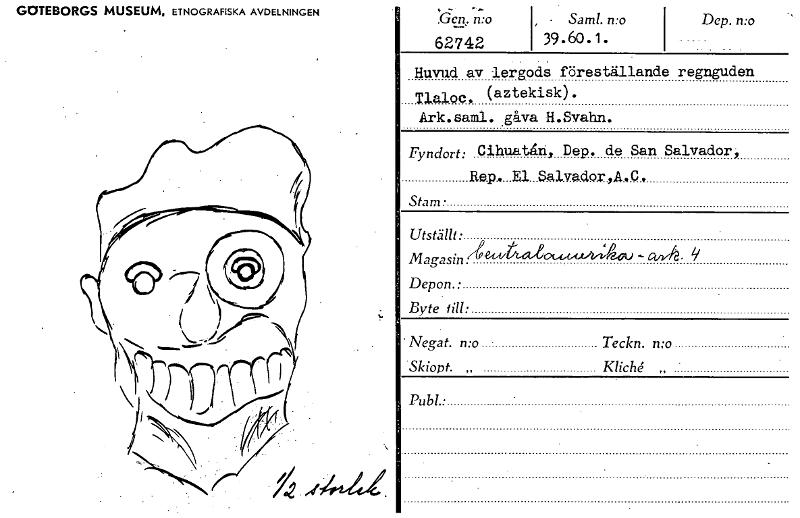 GÖTEBORGS MUSEUM, ETNOGRAFISKA AVDELNINGEN
1/2 storlek.
Gen. n:o Saml. n:o Dep. n:o
62742 39.60.1.
Huvud av lergods föreställande regnguden
Tlaloc. (aztekisk).
Ark.saml. gåva H.Svahn.
Fyndort: Cihuatán, Dep. de San Salvador,
Rep. El Salvador,A.C.
Stam:
Utställt:
Magasin: Centralamerika - ark. 4
Depon.:
Byte till:
Negat. n:o Teckn. n:o
Skiopt. „ Kliché „
Publ.: